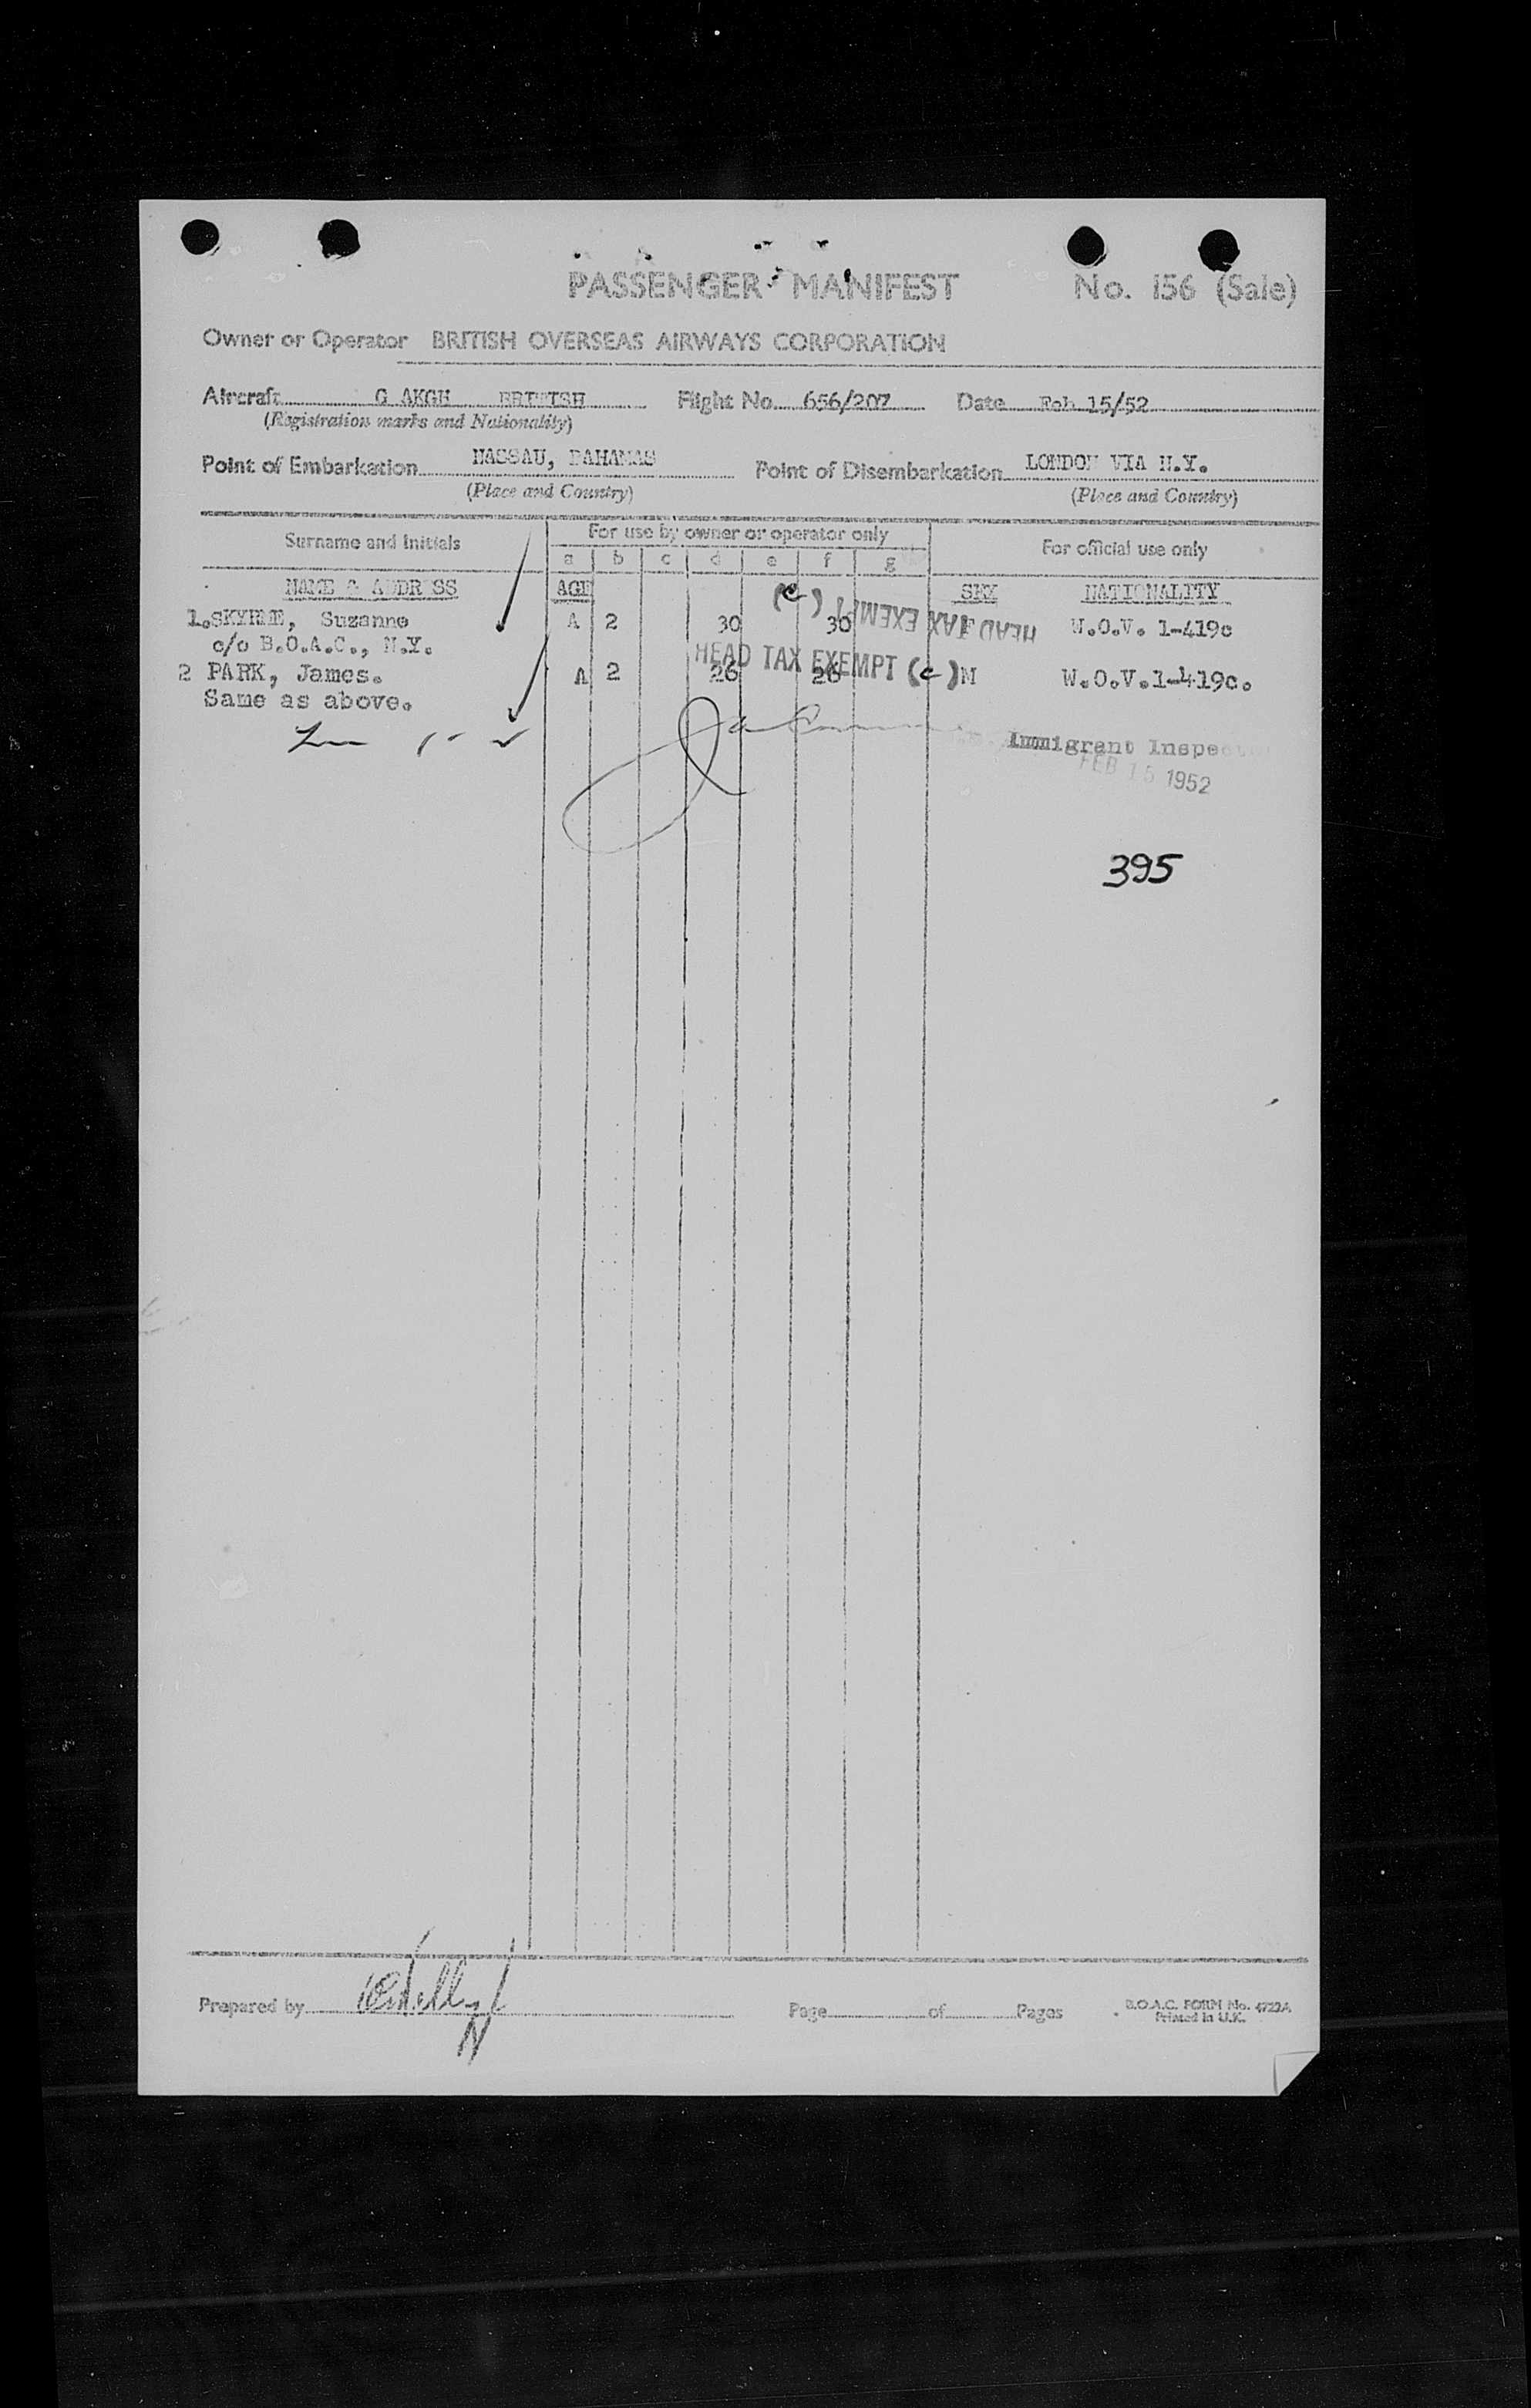 PASSENGER MANIFEST No. 156 (Sale)
Owner or Operator BRITISH OVERSEAS AIRWAYS CORPORATION
Aircraft G AKGH BRITISH Flight No. 656/207 Date Feb 15/52
(Registration marks and Nationality)
Point of Embarkation NASSAU, BAHAMAS Point of Disembarkation LONDON VIA N.Y.
(Place and Country) (Place and Country)
Surname and Initials For use by owner or operator only For official use only
a b c d e f g
NAME & ADDRESS AGE SEX NATIONALITY
1. Suzanne A 2 30 30 F W.O.V. 1-419c
HEAD TAX EXEMPT (c)
c/o B.O.A.C., N.Y.
HEAD TAX EXEMPT (c)
2 PARK, James. A 2 26 26 M W.O.V.1-419c.
Same as above.
Immigrant Inspector
FEB 15 1952
395
Prepared by Page of Pages B.O.A.C. FORM No. 4722A
Printed in U.K.